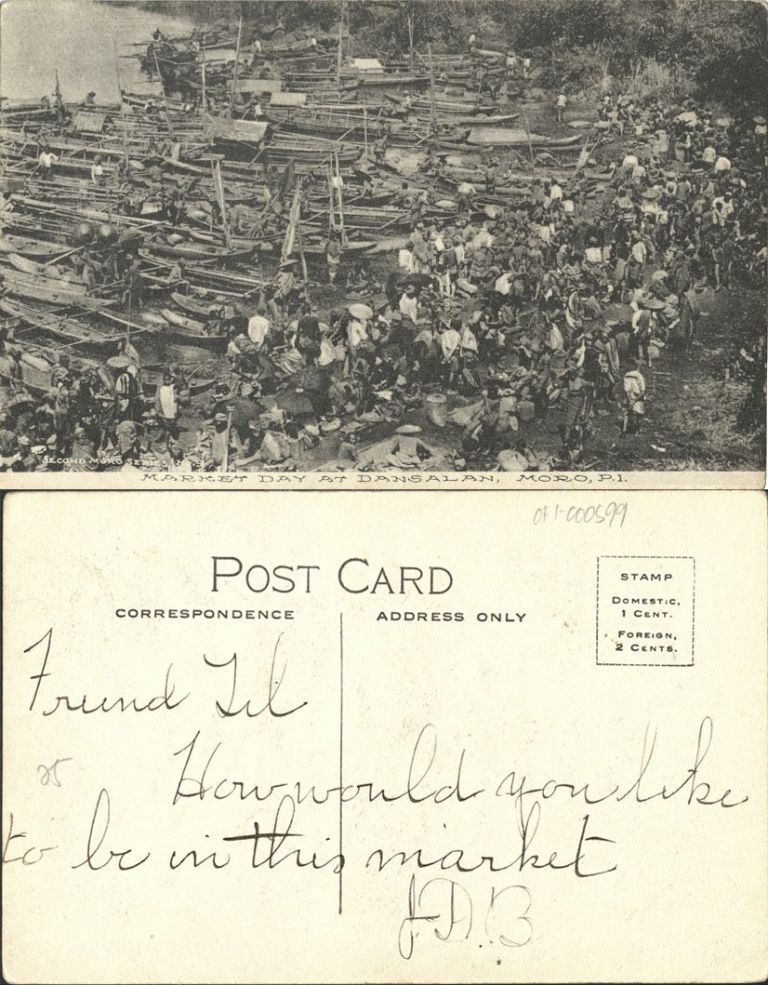 SECOND MORO SERIES
MARKET DAY AT DANSALAN, MORO, P.I.
OF1-000599
POST CARD
CORRESPONDENCE
ADDRESS ONLY
STAMP
DOMESTIC,
1 CENT.
FOREIGN,
2 CENTS.
Friend Lil
25
How would you like
to be in this market
J.A.B